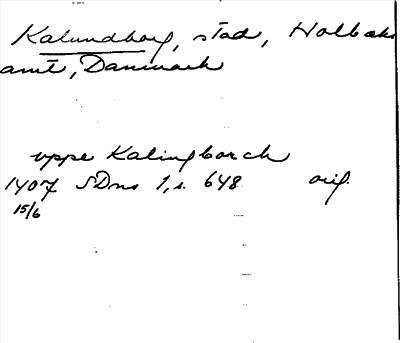 Kalundborg, stad, Holbæks
amt, Danmark
uppe Kalingborch
1407 SDns 1, s. 648 orig.
15/6